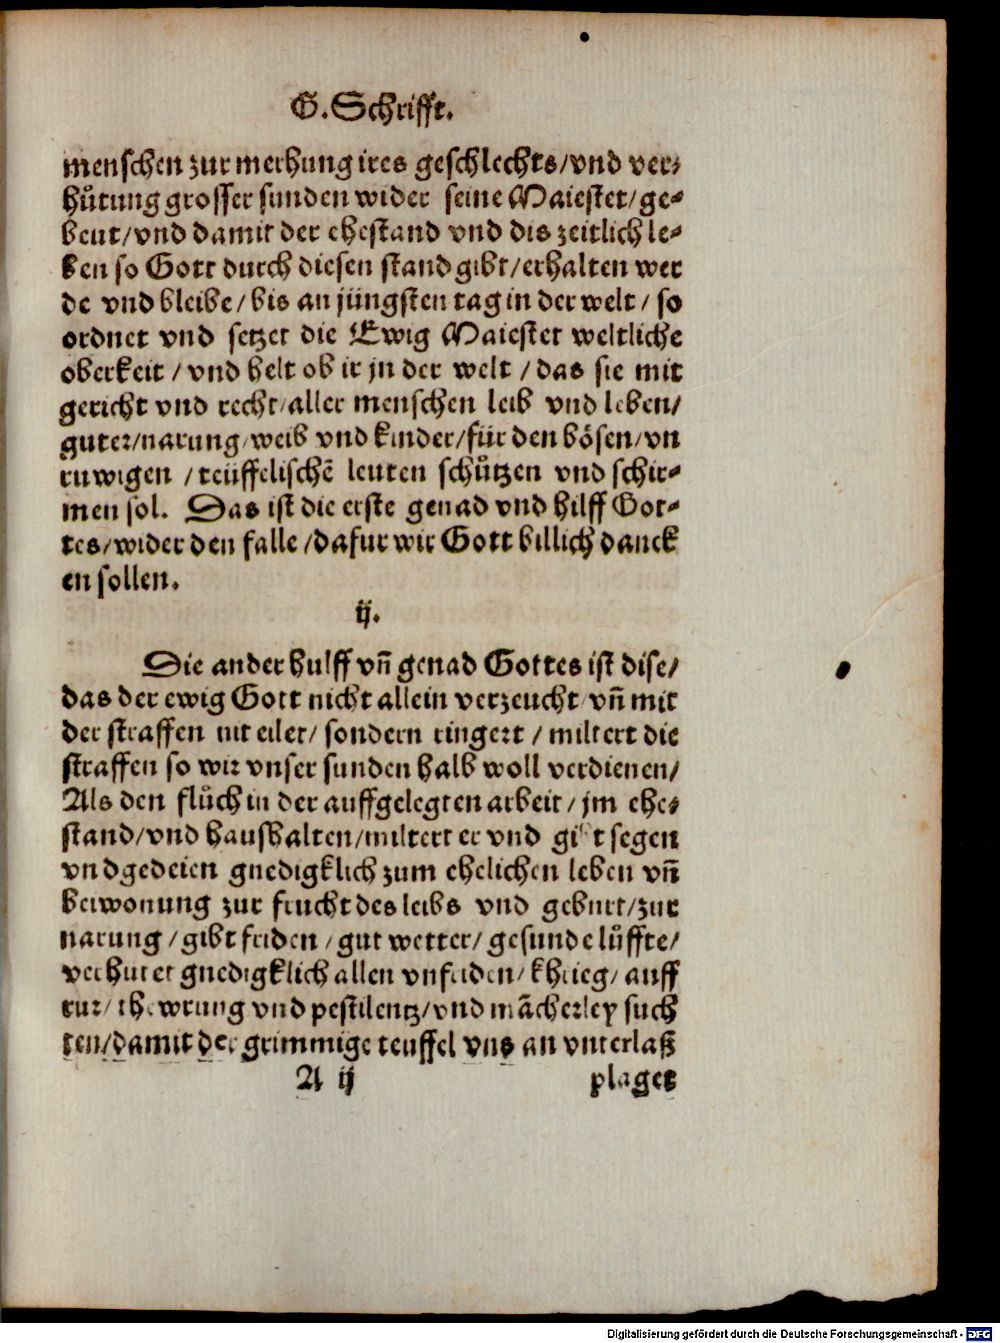 G. Schrifft.
menschen zur merhung ires geschlechts/vnd ver-
hůtung grosser sunden wider seine Maiestet/ge-
beut/vnd damit der ehestand vnd dis zeitlich le-
ben so Gott durch diesen stand gibt/erhalten wer
de vnd bleibe/bis an jüngsten tag in der welt/so
ordnet vnd setzet die Ewig Maiestet weltliche
oberkeit/vnd helt ob ir jn der welt/das sie mit
gericht vnd recht/aller menschen leib vnd leben/
guter/narung/weib vnd kinder/für den bösen/vn
ruwigen/teüffelischē leuten schůtzen vnd schir-
men sol. Das ist die erste genad vnd hilff Got-
tes/wider den falle/dafur wir Gott billich danck
en sollen.
ij.
Die ander hulff vñ genad Gottes ist dise/
das der ewig Gott nicht allein verzeucht vñ mit
der straffen nit eilet/sondern ringert/miltert die
straffen so wir vnser sunden halb woll verdienen/
Als den flůch in der auffgelegten arbeit/jm ehe-
stand/vnd haushalten/miltert er vnd gibt segen
vnd gedeien gnedigklich zum ehelichen leben vñ
beiwonung zur frucht des leibs vnd geburt/zur
narung/gibt friden/gut wetter/gesunde lůffte/
verhutet gnedigklich allen vnfriden/khrieg/auff
rur/thewrung vnd pestilentz/vnd mācherley such
ten/damit der grimmige teuffel vns an vnterlaß
A ij plaget
Digitalisierung gefördert durch die Deutsche Forschungsgemeinschaft - DFG